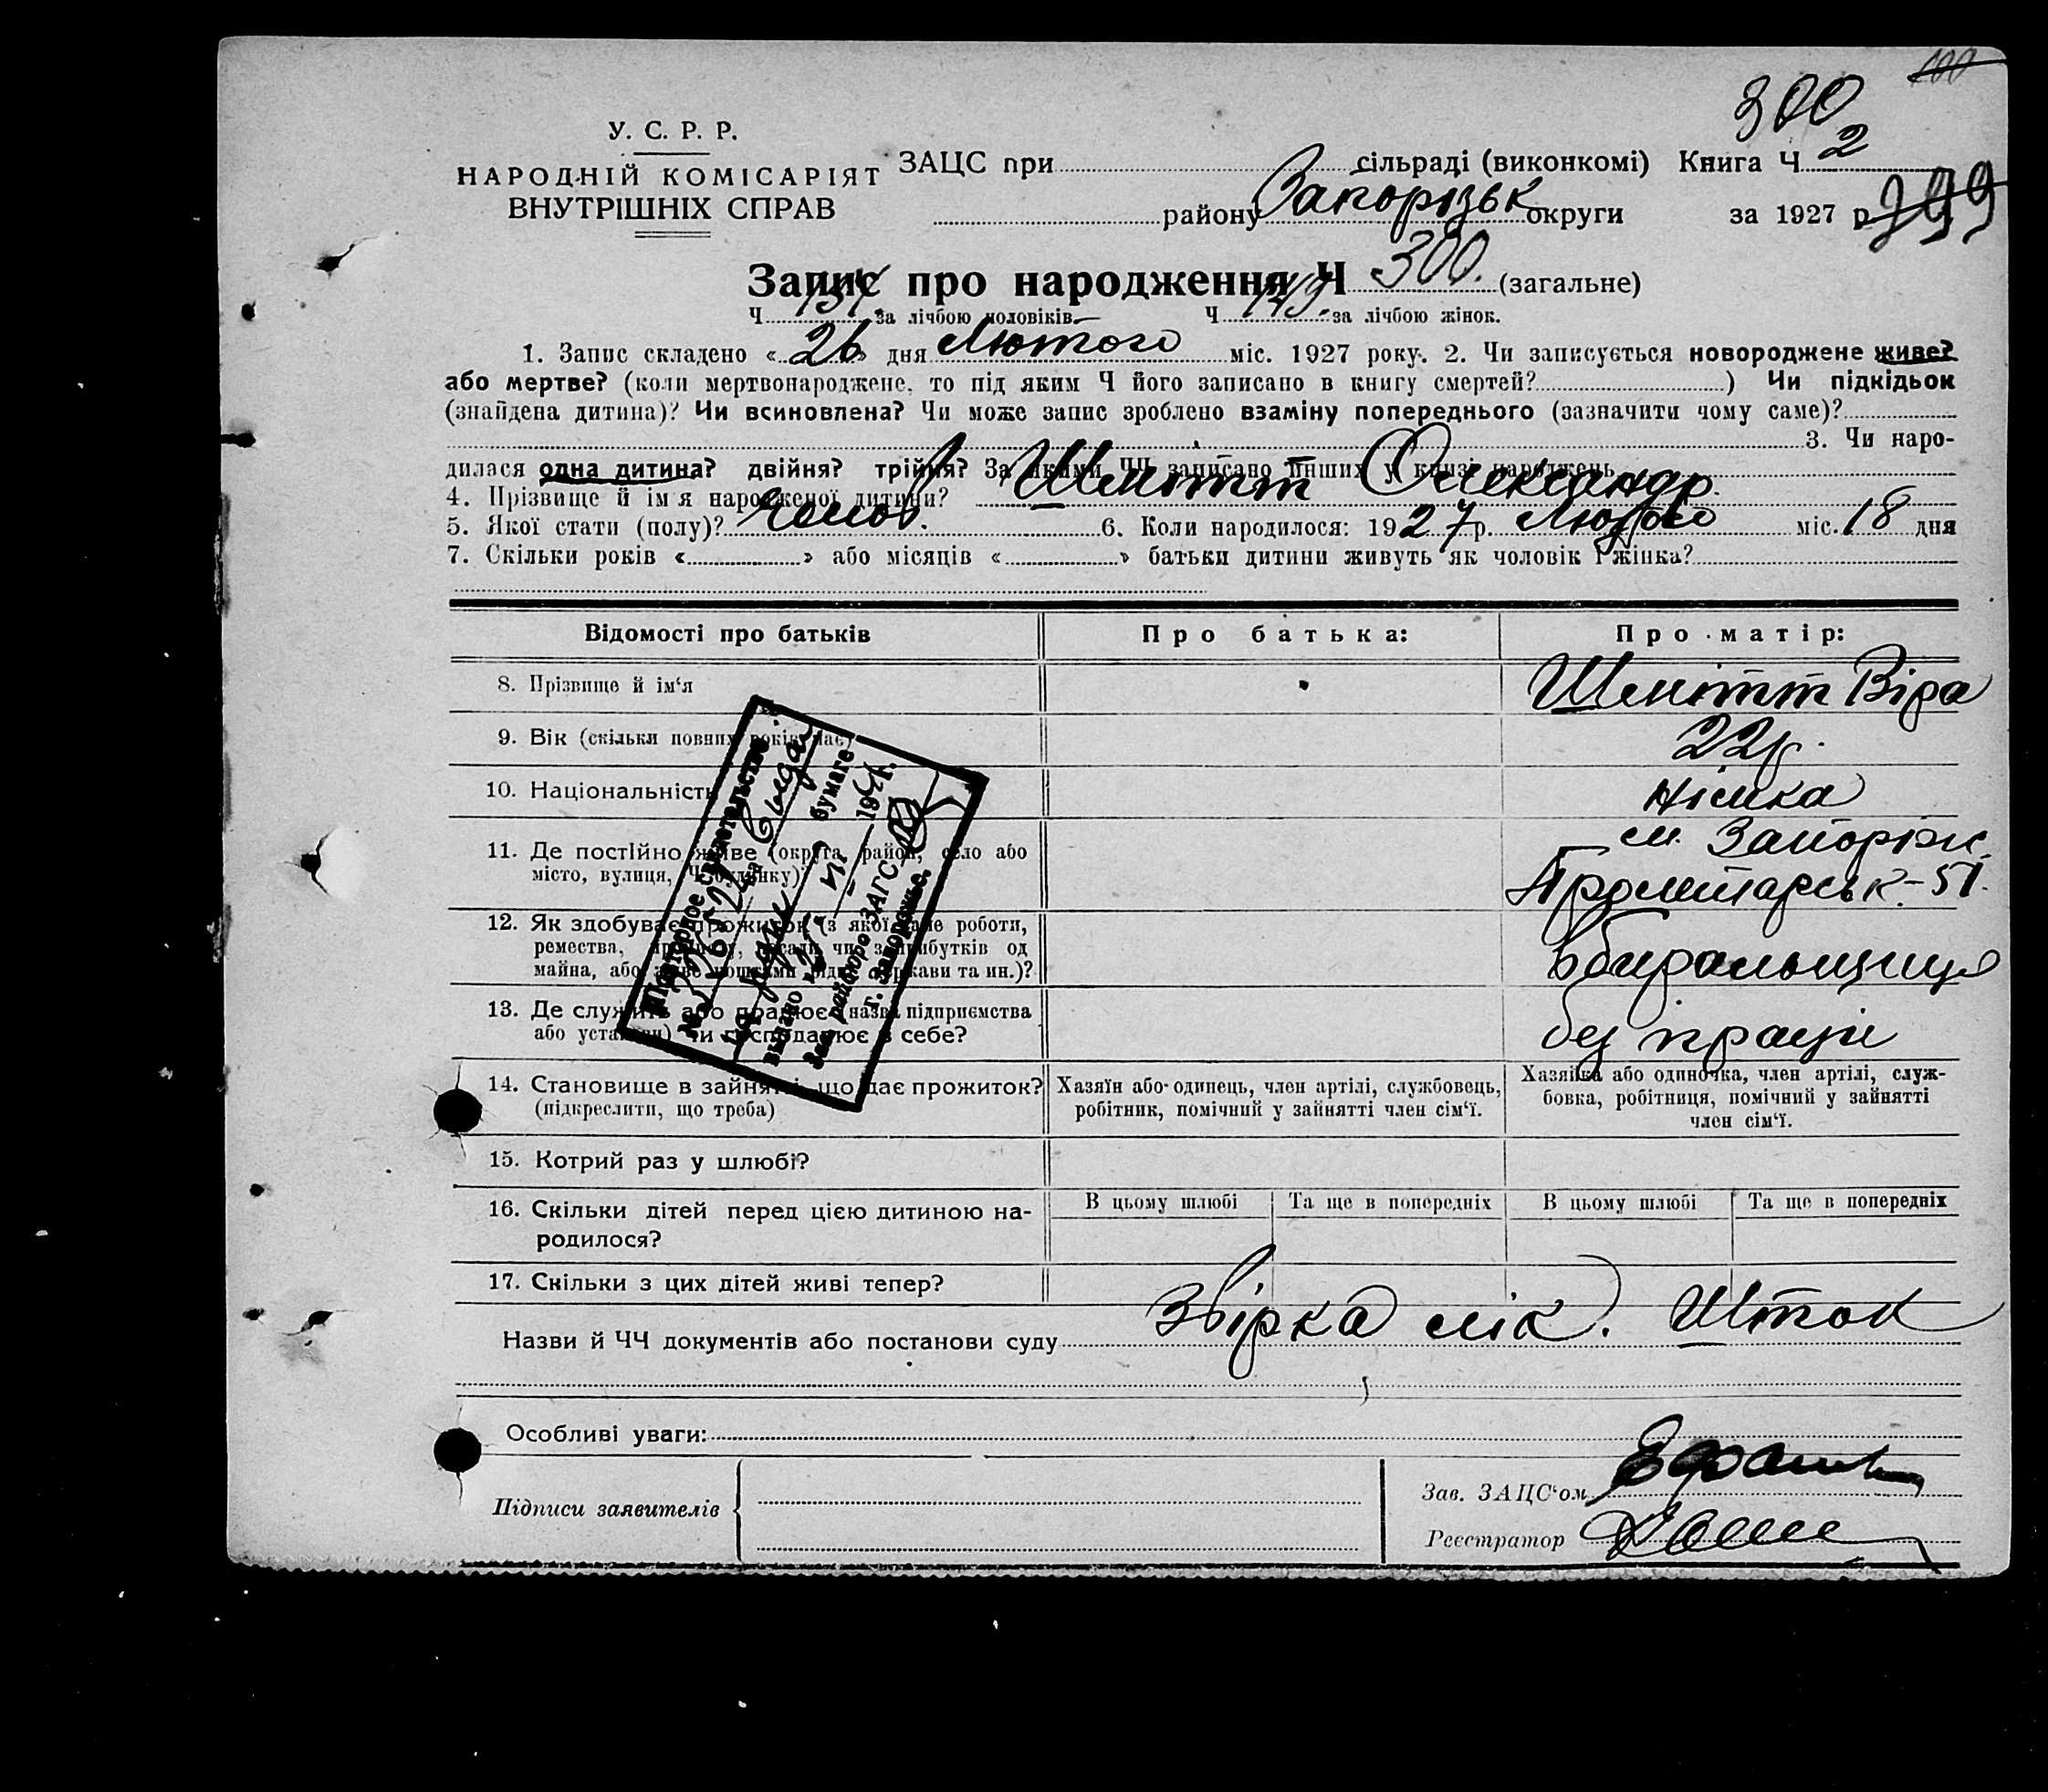 100
300
У. С. Р. Р.
НАРОДНІЙ КОМІСАРІЯТ
ВНУТРІШНІХ СПРАВ
ЗАЦС при сільраді (виконкомі) Книга Ч 2
району Запорізьк округи за 1927 р. 299
Запис про народження Ч 300. (загальне)
Ч 151. за лічбою чоловіків Ч 149. за лічбою жінок.
1. Запис складено « 26 » дня Лютого міс. 1927 року. 2. Чи записується новороджене живе?
або мертве? (коли мертвонароджене, то під яким Ч його записано в книгу смертей? ) Чи підкідьок
(знайдена дитина)? Чи всиновлена? Чи може запис зроблено взаміну попереднього (зазначити чому саме)?
3. Чи наро-
дилася одна дитина? двійня? трійня? За якими ЧЧ записано інших у книзі народжень
4. Прізвище й ім'я народженої дитини? Шмітт Олександр.
5. Якої стати (полу)? чолов. 6. Коли народилося: 1927 р. Лютого міс. 18 дня
7. Скільки років « » або місяців « » батьки дитини живуть як чоловік і жінка?
Відомості про батьків Про батька: Про матір:
8. Прізвище й ім'я Шмітт Віра
9. Вік (скільки повних років має) 22 р.
10. Національність німка
11. Де постійно живе (округа, район, село або
місто, вулиця, Ч будинку)? м. Запоріж.
Пролетарськ.-51.
12. Як здобуває прожиток (з якої саме роботи,
ремества, промислу, посади чи з прибутків од
майна, або живе коштами рідні, держави та ин.)? вбиральщиця
13. Де служить або працює (назва підприємства
або установи) чи господарює в себе? без праці
14. Становище в занятті, що дає прожиток?
(підкреслити, що треба)
Хазяїн або одинець, член артілі, службовець,
робітник, помічний у зайнятті член сім'ї.
Хазяйка або одиночка, член артілі, служ-
бовка, робітниця, помічний у зайнятті
член сім'ї.
15. Котрий раз у шлюбі?
16. Скільки дітей перед цією дитиною на-
родилося?
В цьому шлюбі Та ще в попередніх В цьому шлюбі Та ще в попередніх
17. Скільки з цих дітей живі тепер?
Назви й ЧЧ документів або постанови суду Звірка лік. Шток
Особливі уваги:
Підписи заявителів
Зав. ЗАЦС'ом
Реєстратор
Повторное свидетельство
№
на бумаге
выдано 25 VII 194 г.
Зав. райбюро ЗАГС
г. Запорожье.